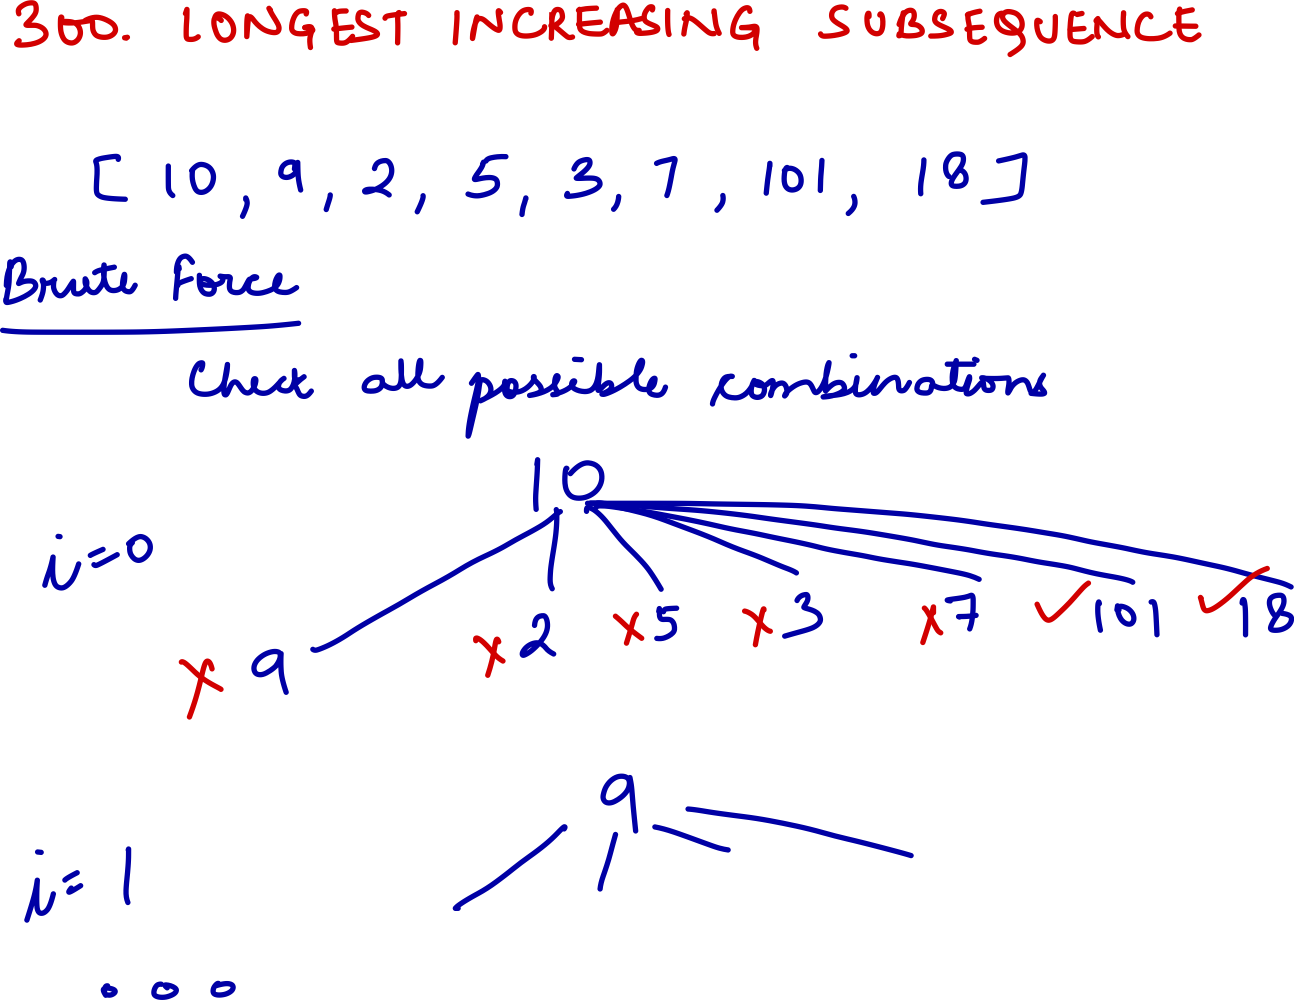 300. LONGEST INCREASING SUBSEQUENCE
[10, 9, 2, 5, 3, 7, 101, 18]
Brute Force
Check all possible combinations
10
i=0
x 9 x 2 x 5 x 3 x 7 ✓ 101 ✓ 18
9
i=1
...